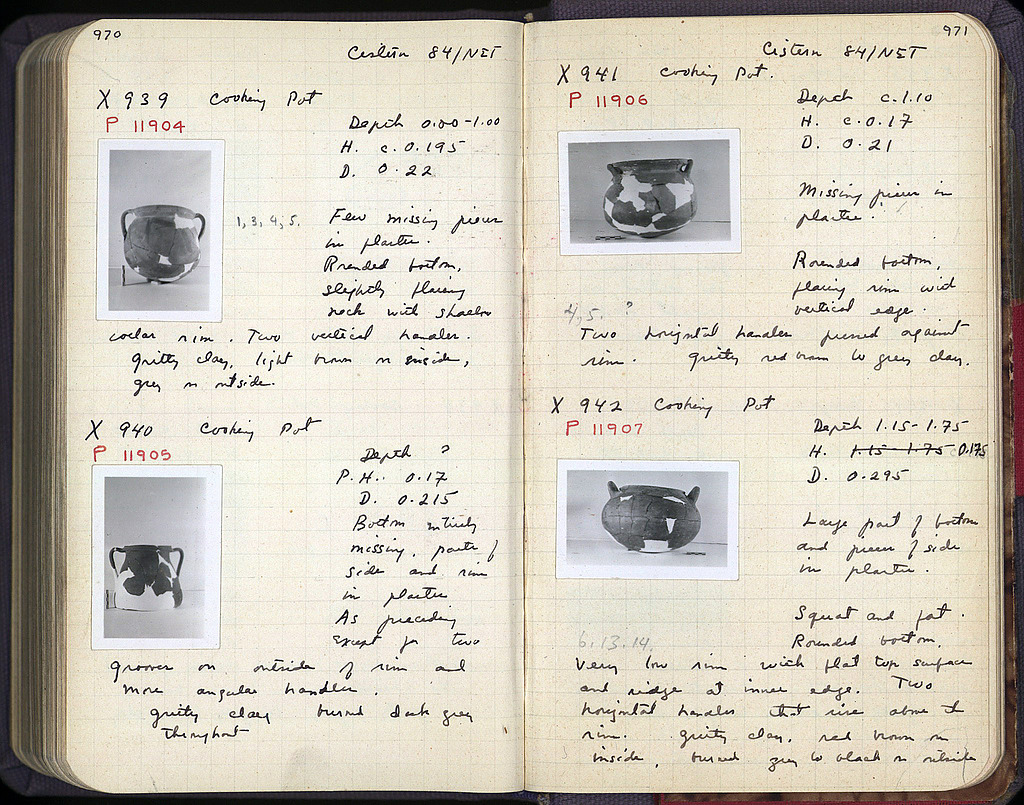 970
Cistern 84/NET
X 939 Cooking Pot
P 11904
Depth 0.00-1.00
H. c. 0.195
D. 0.22
1, 3, 4, 5.
Few missing pieces
in plaster.
Rounded bottom,
slightly flaring
neck with shallow
collar rim. Two vertical handles.
gritty clay, light brown on inside,
grey on outside.
X 940 Cooking Pot
P 11905
Depth ?
P.H. 0.17
D. 0.215
Bottom entirely
missing, parts of
side and rim
in plaster
As preceding
except for two
grooves on outside of rim and
more angular handles.
gritty clay burned dark grey
throughout
971
Cistern 84/NET
X 941 Cooking Pot.
P 11906
Depth c. 1.10
H. c. 0.17
D. 0.21
Missing pieces in
plaster.
Rounded bottom,
flaring rim with
vertical edge.
4, 5. ?
Two horizontal handles pressed against
rim. gritty red brown to grey clay.
X 942 Cooking Pot
P 11907
Depth 1.15-1.75
H. 1.15-1.75 0.175
D. 0.295
Large part of bottom
and pieces of side
in plaster.
Squat and fat.
6. 13. 14.
Rounded bottom.
Very low rim with flat top surface
and ridge at inner edge. Two
horizontal handles that rise above the
rim. gritty clay, red brown on
inside, burned grey to black on outside